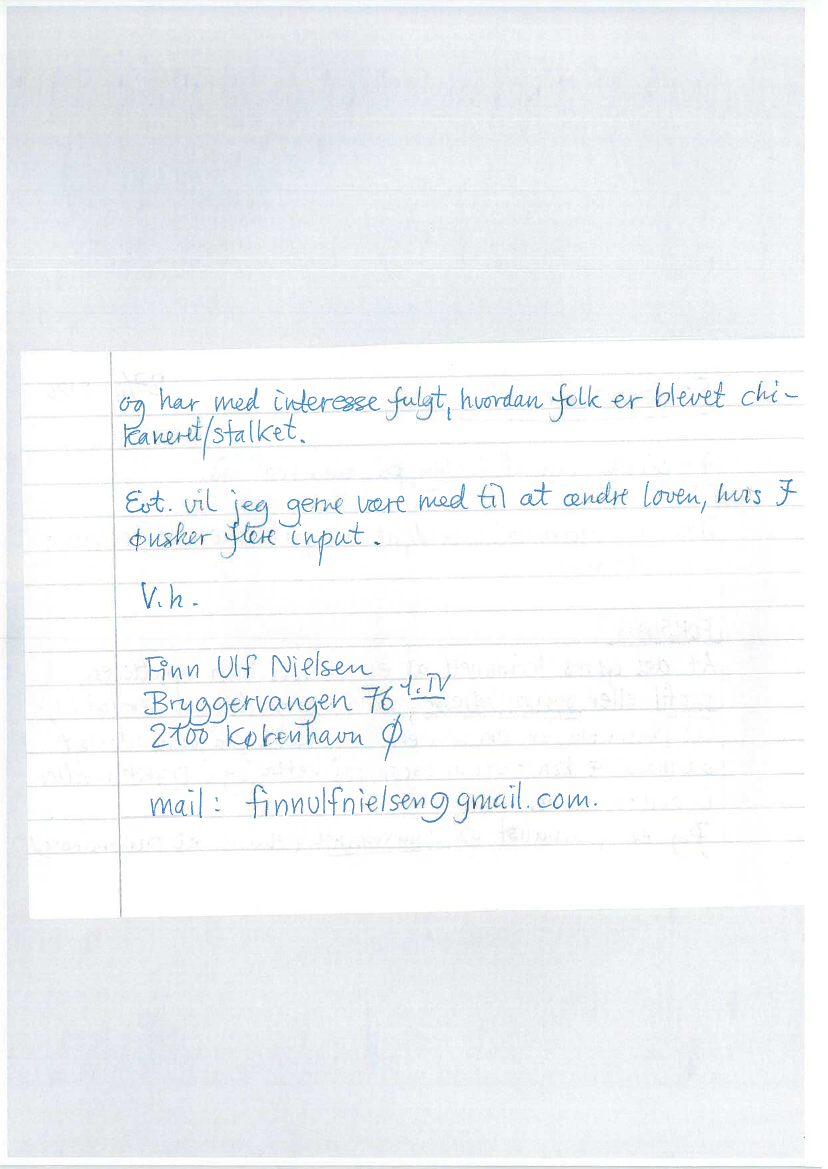 og har med interesse fulgt, hvordan folk er blevet chi-
kaneret/stalket.
Evt. vil jeg gerne være med til at ændre loven, hvis I
ønsker flere input.
V.h.
Finn Ulf Nielsen
Bryggervangen 76 1. IV
2100 København Ø
mail: finnulfnielsen@gmail.com.